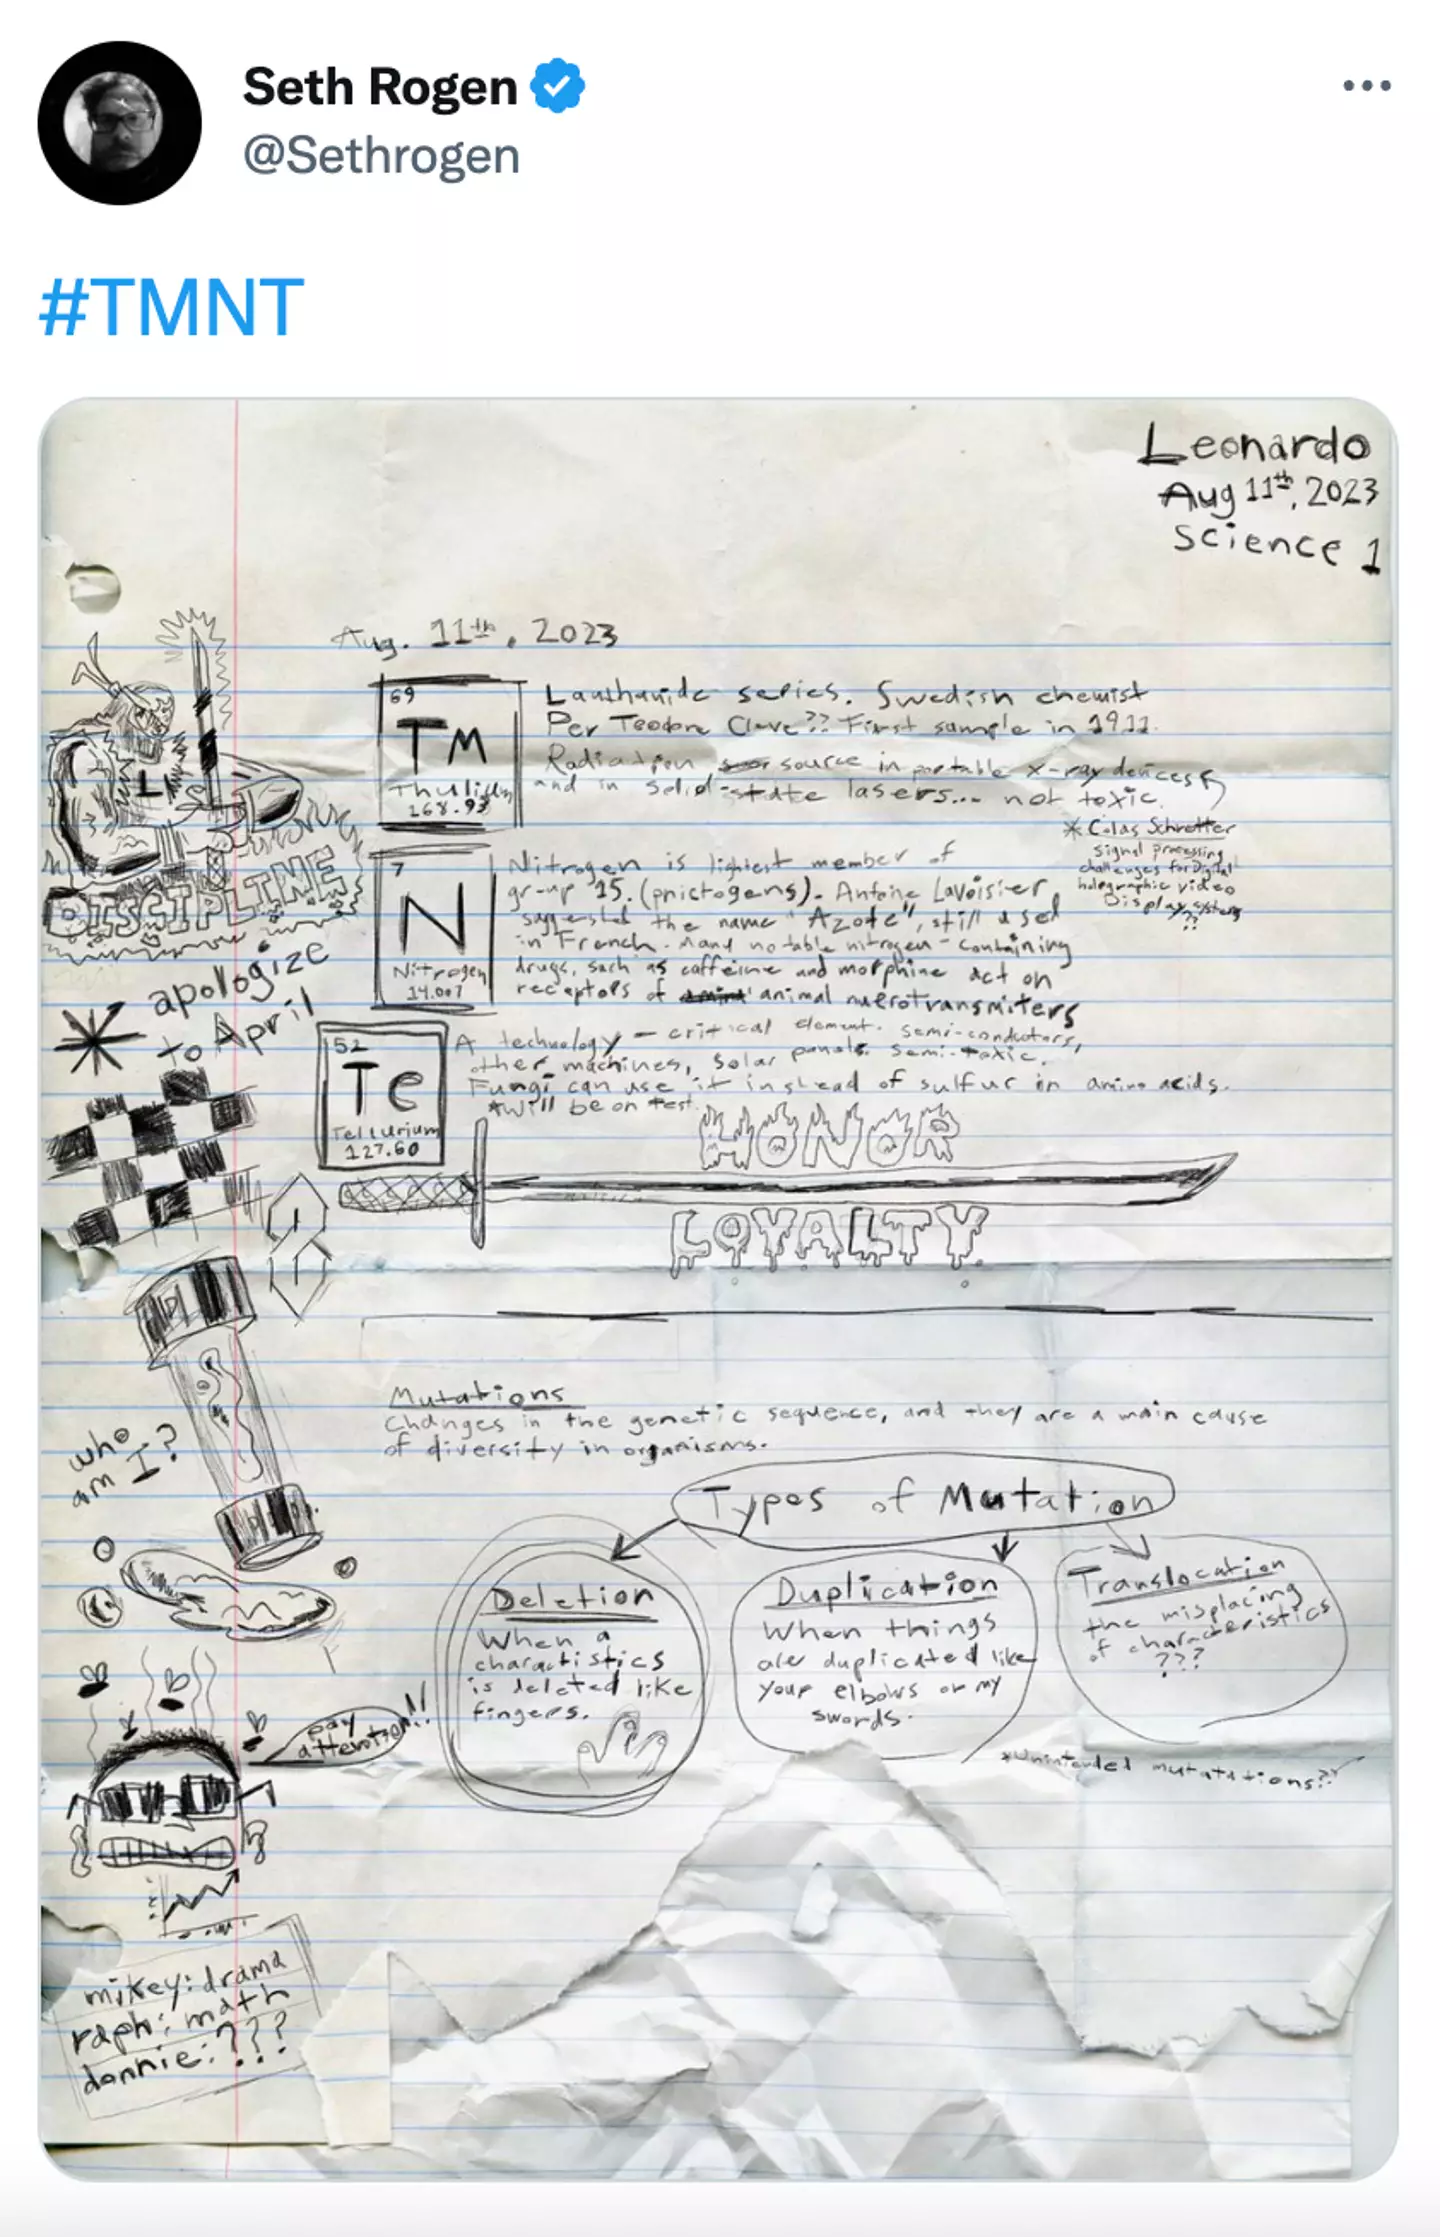 Seth Rogen
@Sethrogen
#TMNT
Leonardo
Aug 11th, 2023
Science 1
Aug. 11th, 2023
69
Tm
Thulium
168.93
Lanthanide series. Swedish chemist
Per Teodor Cleve?? First sample in 1911.
Radiation source in portable x-ray devices
and in solid-state lasers... not toxic.
* Colas Schretter
signal processing
challenges for Digital
holographic video
Display systems
??
7
N
Nitrogen
14.007
Nitrogen is lightest member of
group 15. (pnictogens). Antoine Lavoisier
suggested the name "Azote", still used
in French. Many notable nitrogen-containing
drugs, such as caffeine and morphine act on
receptors of animal nuerotransmiters
L
DISCIPLINE
* apologize
to April
52
Te
Tellurium
127.60
A technology-critical element. semi-conductors,
other machines, solar panels. semi-toxic.
Fungi can use it instead of sulfur in amino acids.
*Will be on test.
HONOR
LOYALTY
who
am I?
Mutations
Changes in the genetic sequence, and they are a main cause
of diversity in organisms.
Types of Mutation
Deletion
When a
charactistics
is deleted like
fingers.
Duplication
When things
are duplicated like
your elbows or my
swords.
Translocation
the misplacing
of characteristics
???
*Unintended mutatations??
pay
attention!!
mikey: drama
raph: math
donnie: ???